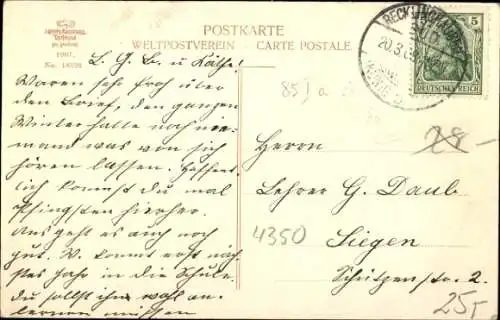 POSTKARTE
WELTPOSTVEREIN - CARTE POSTALE.
1907.
No.
RECKLINGHAUSEN
20.3.
5
DEUTSCHES REICH
L. G. Br. u Käthe!
Waren sehr froh über
den Brief, den ganzen
Winter hatte noch nie-
mand was von sich
hören lassen. Hoffent-
lich kommst du mal
Pfingsten hierher.
Uns geht es auch noch
gut. W. kommt erst näch-
stes Jahr in die Schule.
Du sollst ihn wohl an-
lernen müssen
85 a
28-
Herrn
Lehrer G. Daub
4350
Siegen
Schützenstr. 2.
25,-